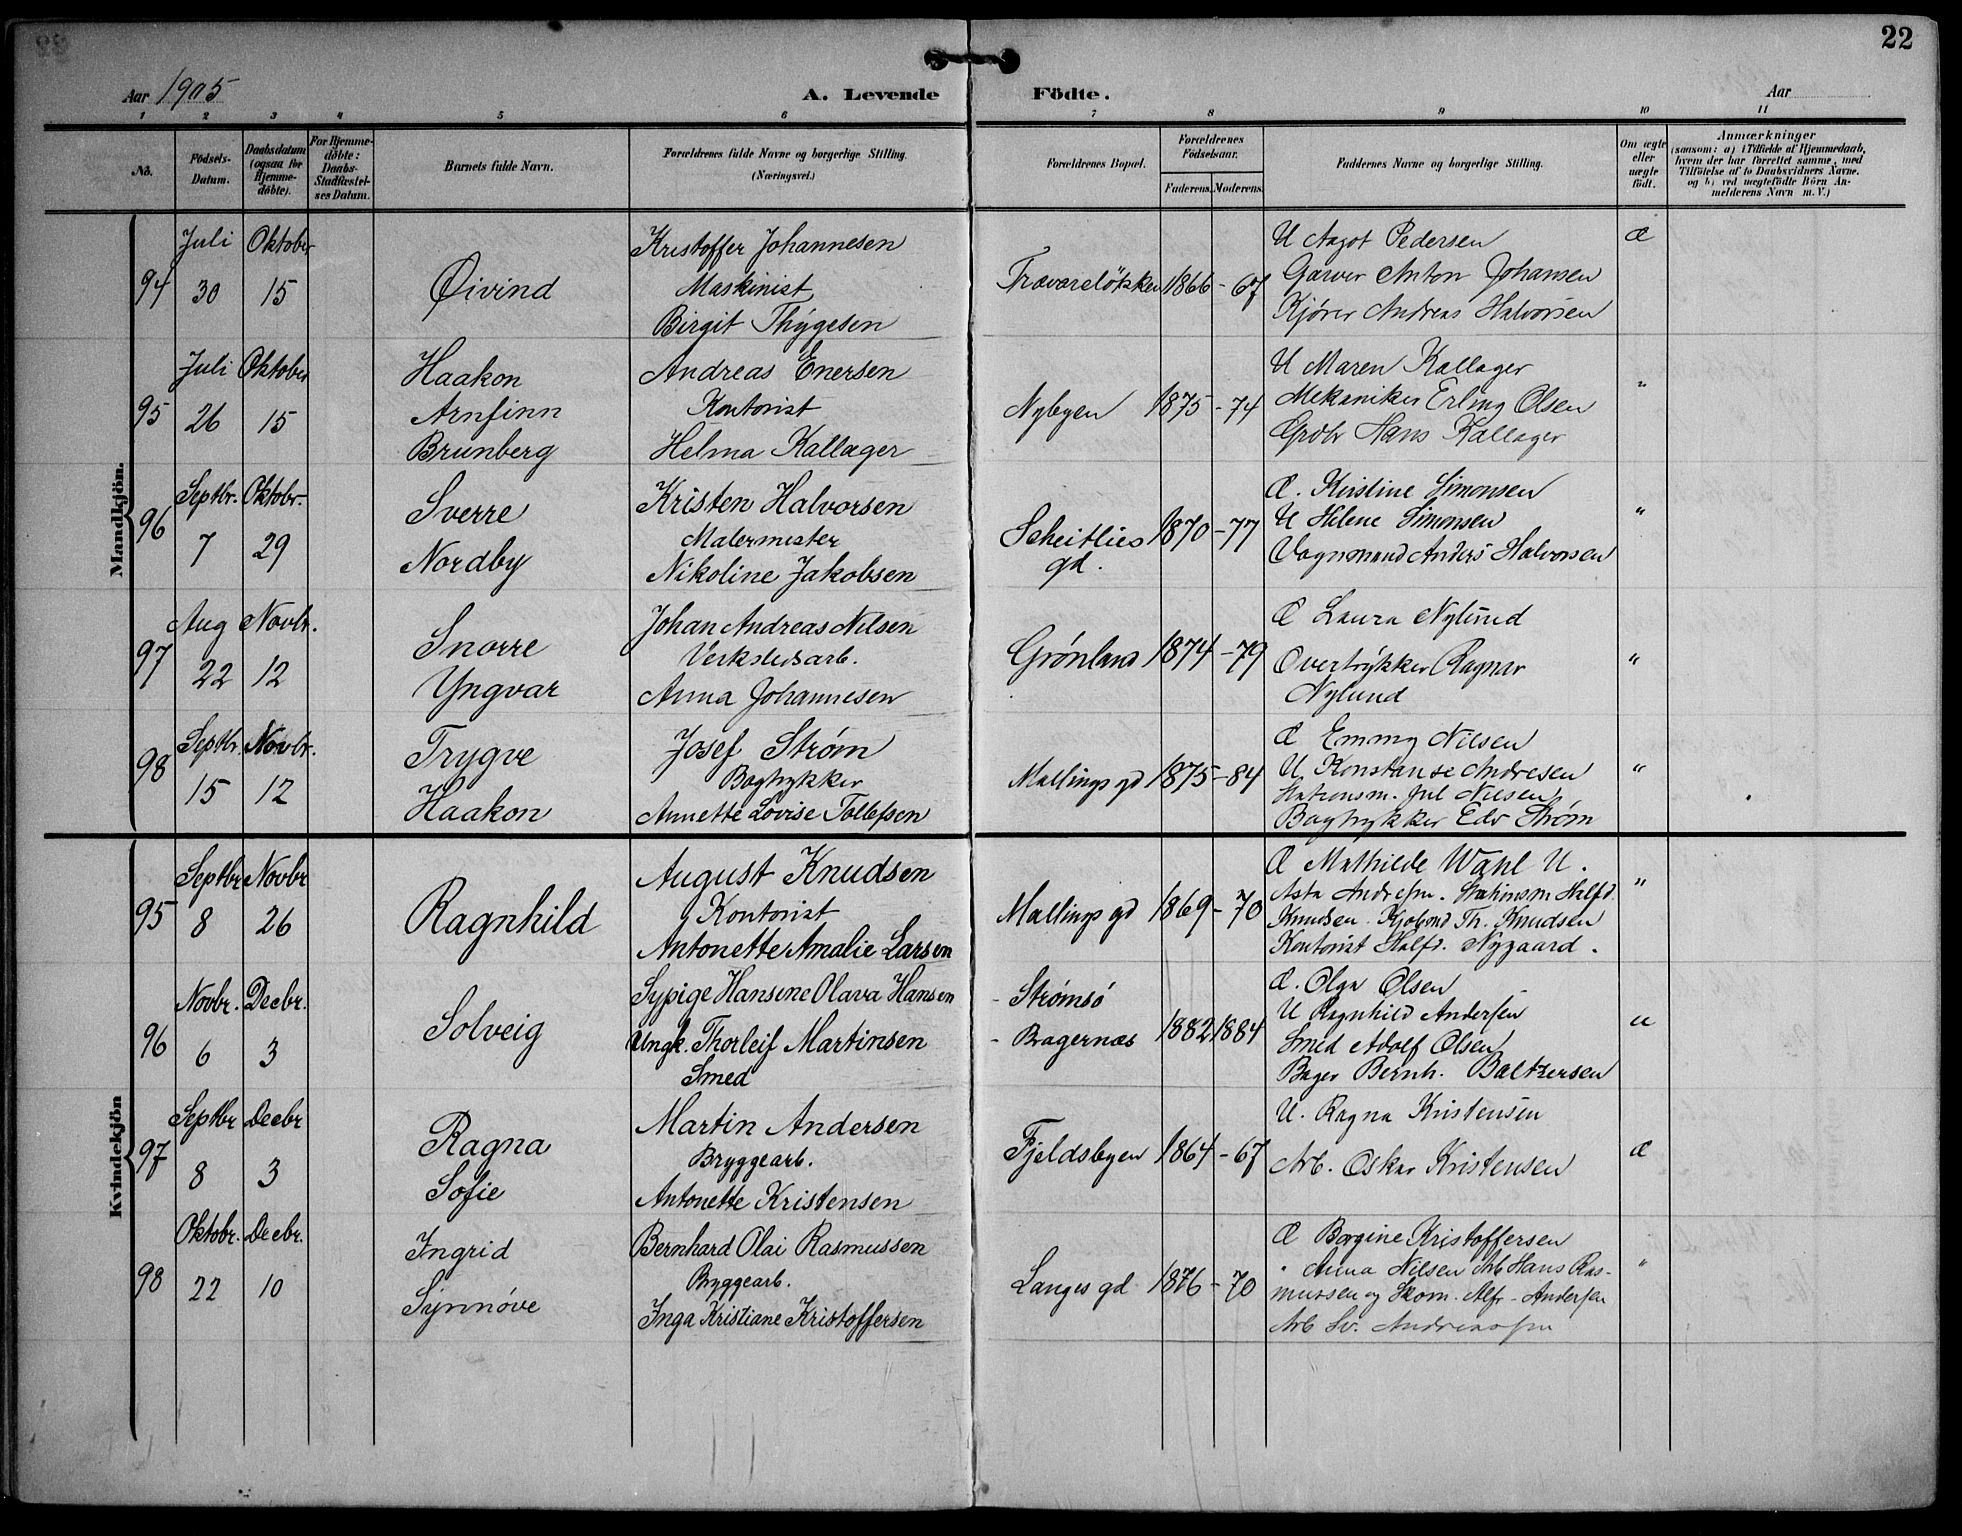 22
Aar 1905
A. Levende Födte.
Aar
1 2 3 4 5 6 7 8 9 10 11
No.
Födsels-Datum.
Daabsdatum (ogsaa for Hjemme-döbte).
For Hjemme-döbte: Daabs-Stadfæstel-ses Datum.
Barnets fulde Navn.
Forældrenes fulde Navne og borgerlige Stilling.
(Næringsvei.)
Forældrenes Bopæl.
Forældrenes Födselsaar.
Faderens. Moderens.
Faddernes Navne og borgerlige Stilling.
Om ægte eller uægte födt.
Anmærkninger
(saasom: a) i Tilfælde af Hjemmedaab, hvem der har forrettet samme, med Tilföielse af to Daabsvidners Navne. og b) ved uægtefödte Börn An-melderens Navn m. V.)
Mandkjön.
94
Juli 30
Oktober 15
Øivind
Kristoffer Johannesen
Maskinist
Birgit Thygesen
Travareløkken 1866 - 67
U Aagot Pedersen
Garver Anton Johansen
Kjører Andreas Halvorsen
Æ
95
Juli 26
Oktober 15
Haakon
Arnfinn
Brunberg
Andreas Enersen
Kontorist
Helma Kallager
Nybyen 1875 - 74
U Maren Kallager
Mekaniker Erling Olsen
Grdbr Hans Kallager
"
96
Septbr. 7
Oktobr. 29
Sverre
Nordby
Kristen Halvorsen
Malermester
Nikoline Jakobsen
Scheitlies gd. 1870 - 77
Æ. Kristine Simonsen
U Helene Simonsen
Vognmand Anders Halvorsen
"
97
Aug 22
Novbr. 12
Snorre
Yngvar
Johan Andreas Nilsen
Verkstedsarb.
Anna Johannesen
Grønland 1874 - 79
Æ Laura Nylund
Overtrykker Ragnar
Nylund
"
98
Septbr. 15
Novbr. 12
Trygve
Haakon
Josef Strøm
Bogtrykker
Annette Lovise Tollefsen
Mallings gd 1875 - 84
Æ Emmy Nilsen
U. Konstanse Andresen
Stationsm. Jul Nilsen
Bogtrykker Edv Strøm
"
Kvindekjön
95
Septbr 8
Novbr 26
Ragnhild
August Knudsen
Kontorist
Antonette Amalie Larsen
Mallings gd 1869 - 70
Æ Mathilde Wahl U.
Asta Andresen. Stationsm Halfd.
Knudsen. Kjøbmd Th. Knudsen
Kontorist Halfd. Nygaard.
"
96
Novbr. 6
Decbr. 3
Solveig
Sypige Hansine Olava Hansen
Ungk. Thorleif Martinsen
Smed
- Strømsø
- Bragernæs 1882 1884
Æ. Olga Olsen
U Ragnhild Andersen
Smed Adolf Olsen
Bager Bernh. Baltzersen
u
97
Septbr 8
Decbr 3
Ragna
Sofie
Martin Andersen
Bryggearb.
Antonette Kristensen
Fjeldsbyen 1864 - 67
U. Ragna Kristensen
Arb. Oskar Kristensen
Æ
98
Oktobr. 22
Decbr. 10
Ingrid
Synnøve
Bernhard Olai Rasmussen
Bryggearb.
Inga Kristiane Kristoffersen
Langes gd 1876 - 70
Æ Borgine Kristoffersen
" Anna Nilsen Arb Hans Ras-
mussen og Skom. Alfr. Andersen
Arb Sv. Andreassen
"